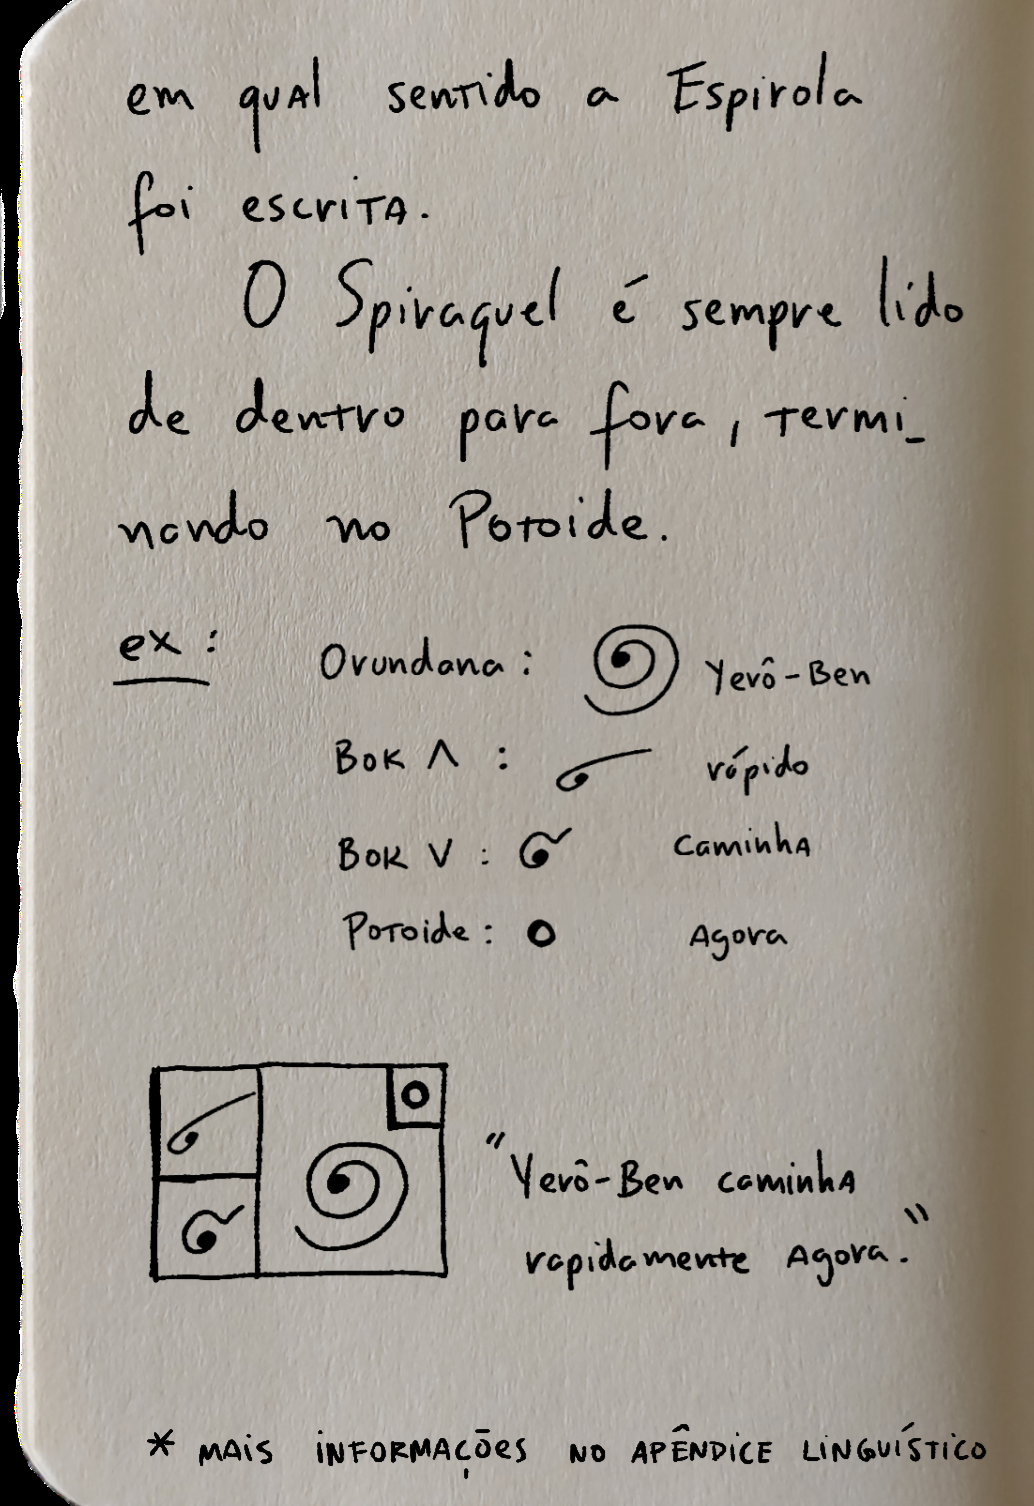 em qual sentido a Espirola
foi escrita.
O Spiraquel é sempre lido
de dentro para fora, termi_
nando no Potoide.
ex: Orundana: Yerô-Ben
Bok Λ : rápido
Bok V : caminha
Potoide: Agora
"Yerô-Ben caminha
rapidamente Agora."
* MAIS INFORMAÇÕES NO APÊNDICE LINGUÍSTICO